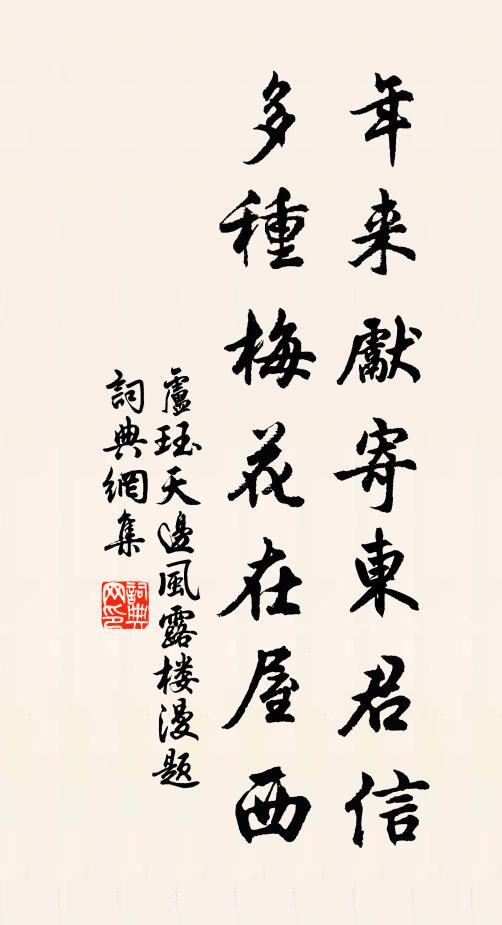 年来獻寄東君信
多種梅花在屋西
盧珏天邊風露楼漫題
詞典網集
詞典网印